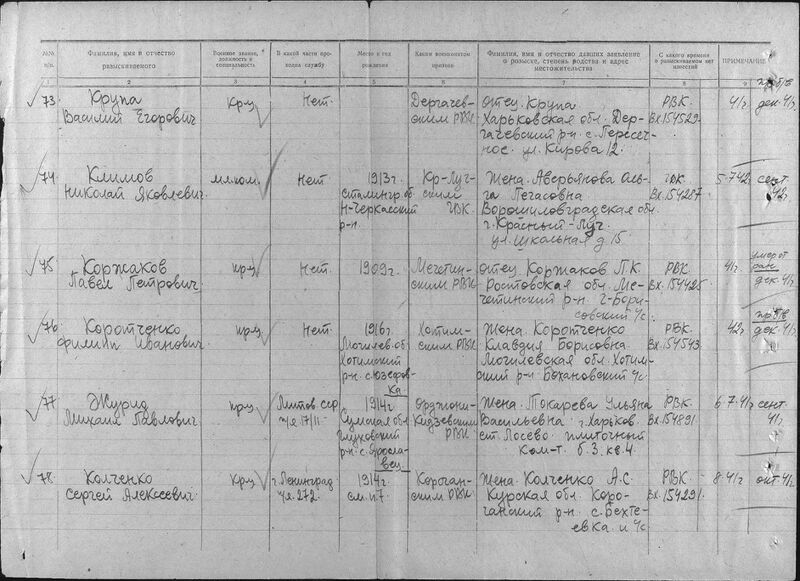 №№ п/п.
Фамилия, имя и отчество разыскиваемого
Военное звание, должность и специальность
В какой части проходил службу
Место и год рождения
Каким военкоматом призван
Фамилия, имя и отчество давших заявление о розыске, степень родства и адрес местожительства
С какого времени о разыскиваемом нет известий
ПРИМЕЧАНИЕ
1 2 3 4 5 6 7 8 9
73 Крупа Василий Егорович
кр-ц
Нет.
Дергачев-
ским РВК
отец Крупа
Харьковская обл. Дер-
гачевский р-н с. Пересеч-
ное. ул. Кирова 12.
РВК.
Вх.154529.
41г.
пр/б/в
дек. 41г.
74 Климов
Николай Яковлевич.
мл.ком.
Нет
1913г.
сталингр. об
Н-Черкасский
р-н.
Кр-Луч-
ским
ГВК.
Жена. Аверьянова Оль-
га Пегасовна
Ворошиловградская обл
г. Красный-Луч.
ул. Школьная д 15
ГВК.
Вх.154287.
5-7 42г.
сент
42г.
75 Коржаков
Павел Петрович.
кр-ц
Нет.
1909г.
Мечетин-
ским РВК
отец Коржаков П.К.
Ростовская обл. Ме-
четинский р-н
совский с/с.
РВК.
Вх.154425
41г.
умер от
ран
дек 41г.
76 Коротченко
Филипп Иванович.
кр-ц
Нет.
1916г.
Могилев. об
Хотимский
р-н. с. Юзефов-
ка.
Хотим-
ским РВК
Жена. Коротченко
Клавдия Борисовна.
Могилевская обл. Хотим-
ский р-н Бохановский с/с.
РВК.
Вх.154543
42г.
пр/б/в
дек. 41г.
77 Журид
Михаил Павлович.
кр-ц
Литов. сср
п/я 17/11-
1914г
Сумская обл
Глуховский
р-н. с. Яросла-
вец.
Орджони-
кидзевским
РВК
Жена. Токарева Ульяна
Васильевна г. Харьков.
ст. Лосево плиточный
ком-т. б. 3. кв. 4.
РВК.
Вх.154891.
6-7-41г
сент
41г.
78 Колченко
Сергей Алексеевич.
кр-ц
г. Ленинград
п/я. 272.
1914г
см. п 7.
Корочан-
ским РВК.
Жена Колченко А.С.
Курская обл. Коро-
чанский р-н с. Бехте-
евка. и с/с.
РВК.
Вх.154291.
8-41г
окт 41г.